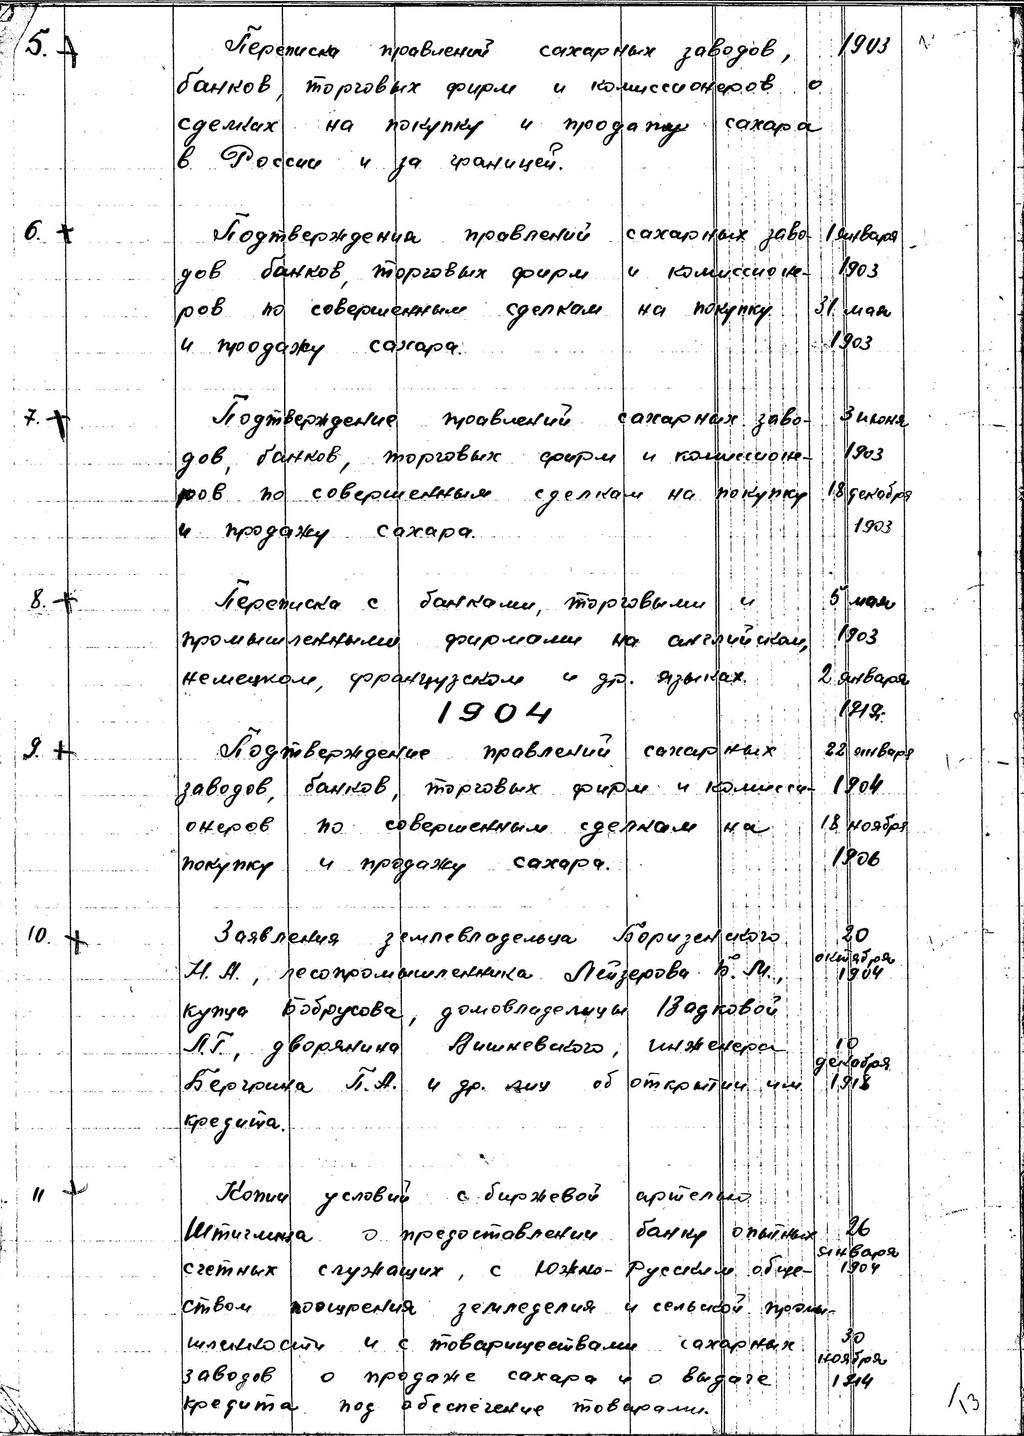 5. + Переписка правлений сахарных заводов, 1903
банков, торговых фирм и комиссионеров о
сделках на покупку и продажу сахара
в России и за границей.
6. + Подтверждения правлений сахарных заво- 1 января
дов банков, торговых фирм и комиссионе- 1903
ров по совершенным сделкам на покупку 31 мая
и продажу сахара. 1903
7. + Подтверждение правлений сахарных заво- 3 июня
дов, банков, торговых фирм и комиссионе- 1903
ров по совершенным сделкам на покупку 18 декабря
и продажу сахара. 1903
8. + Переписка с банками, торговыми и 5 мая
промышленными фирмами на английском, 1903
немецком, французском и др. языках. 2 января
1904
9. + Подтверждение правлений сахарных 22 января
заводов, банков, торговых фирм и комисси- 1904
онеров по совершенным сделкам на 18 ноября
покупку и продажу сахара. 1906
10. + Заявления землевладельца 20
Н.А., лесопромышленника Лейзерова Б.М., октября 1904
купца Бобрусова, домовладелицы Вадковой
Л.Г., дворянина Вишневского, инженера 10
П.А. и др. лиц об открытии им декабря 1918
кредита.
11 + Копии условий с биржевой артелью
Штиглица о предоставлении банку опытных 26
счетных служащих, с Южно-Русским обще- января 1904
ством поощрения земледелия и сельской промы-
шленности и с товариществами сахарных 30
заводов о продаже сахара и о выдаче ноября 1914
кредита под обеспечение товарами.
13